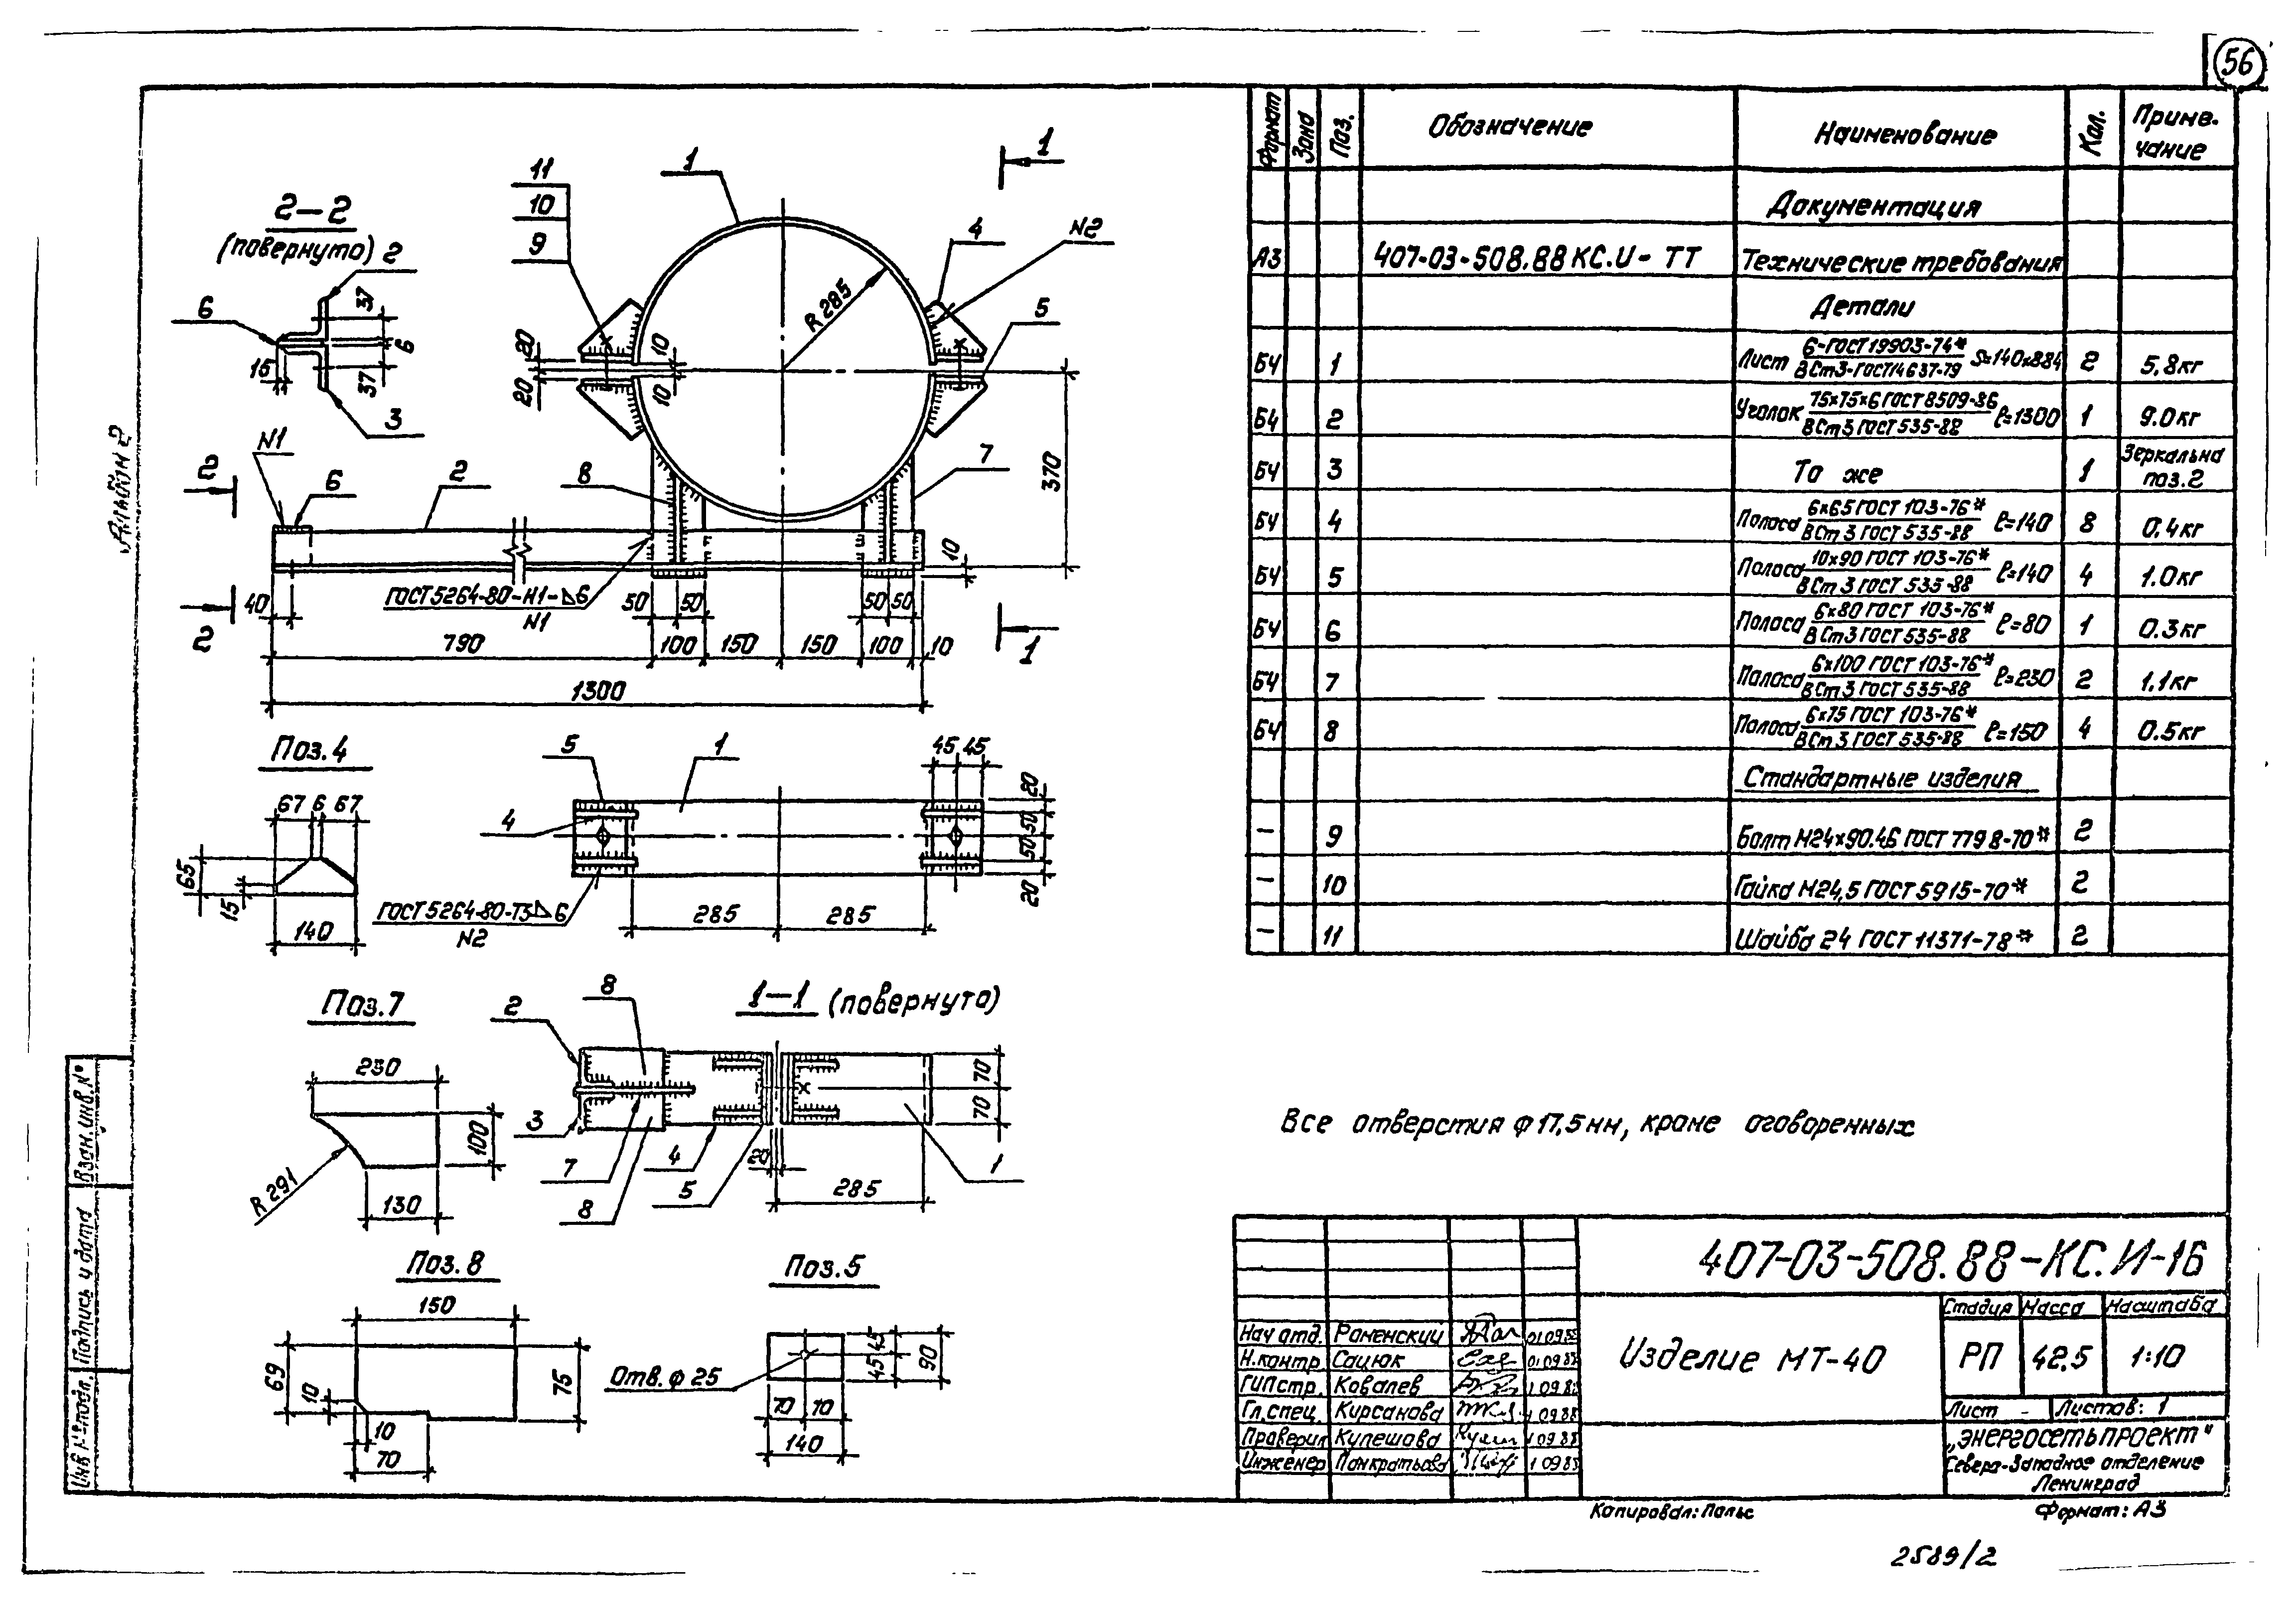 56
Альбом 2
2-2
(повернуто)
2
6
37
6
37
15
3
11
10
9
1
4
N2
1
5
R 285
20
20
10
10
370
N1
2
6
2
8
7
10
ГОСТ 5264-80-Н1-⊿6
N1
40
50
50
50
50
2
1
790
100
150
150
100
10
1300
Поз.4
67 6 67
65
15
140
5
1
4
45 45
20
50
50
20
ГОСТ 5264-80-Т3⊿6
N2
285
285
Поз.7
230
100
R 291
130
1-1 (повернуто)
2
8
3
7
8
4
5
20
285
1
70
70
Поз.8
150
69
10
10
70
75
Поз.5
Отв. ф 25
45 45
90
70
70
140
Формат
Зона
Поз.
Обозначение
Наименование
Кол.
Приме-
чание
Документация
А3 407-03-508.88 КС.И- ТТ Технические требования
Детали
БЧ 1 Лист 6-ГОСТ 19903-74* / ВСт3-ГОСТ14637-79 S=140х884 2 5,8кг
БЧ 2 Уголок 75х75х6 ГОСТ 8509-86 / ВСт3 ГОСТ 535-88 ℓ=1300 1 9.0кг
БЧ 3 То же 1 Зеркально поз.2
БЧ 4 Полоса 6х65 ГОСТ 103-76* / ВСт3 ГОСТ 535-88 ℓ=140 8 0.4кг
БЧ 5 Полоса 10х90 ГОСТ 103-76* / ВСт3 ГОСТ 535-88 ℓ=140 4 1.0кг
БЧ 6 Полоса 6х80 ГОСТ 103-76* / ВСт3 ГОСТ 535-88 ℓ=80 1 0.3кг
БЧ 7 Полоса 6х100 ГОСТ 103-76* / ВСт3 ГОСТ 535-88 ℓ=230 2 1.1кг
БЧ 8 Полоса 6х75 ГОСТ 103-76* / ВСт3 ГОСТ 535-88 ℓ=150 4 0.5кг
Стандартные изделия
- 9 Болт М24х90.46 ГОСТ 7798-70* 2
- 10 Гайка М24,5 ГОСТ 5915-70* 2
- 11 Шайба 24 ГОСТ 11371-78* 2
Все отверстия ф 17,5мм, кроме оговоренных
Взам. инв. №
Подпись и дата
Инв № подл.
407-03-508.88-КС.И-16
Нач отд. Роменский 01.09.88
Н.контр. Сацюк 01 09 88
ГИП стр. Ковалев 1 09 88
Гл. спец. Кирсанова 1 09 88
Проверил Кулешова 1 09 88
Инженер Понкратьева 1 09 88
Изделие МТ-40
Стадия Масса Масштаб
РП 42.5 1:10
Лист - Листов: 1
„ЭНЕРГОСЕТЬПРОЕКТ"
Северо-Западное отделение
Ленинград
Копировал: Польс
Формат: А3
2589/2